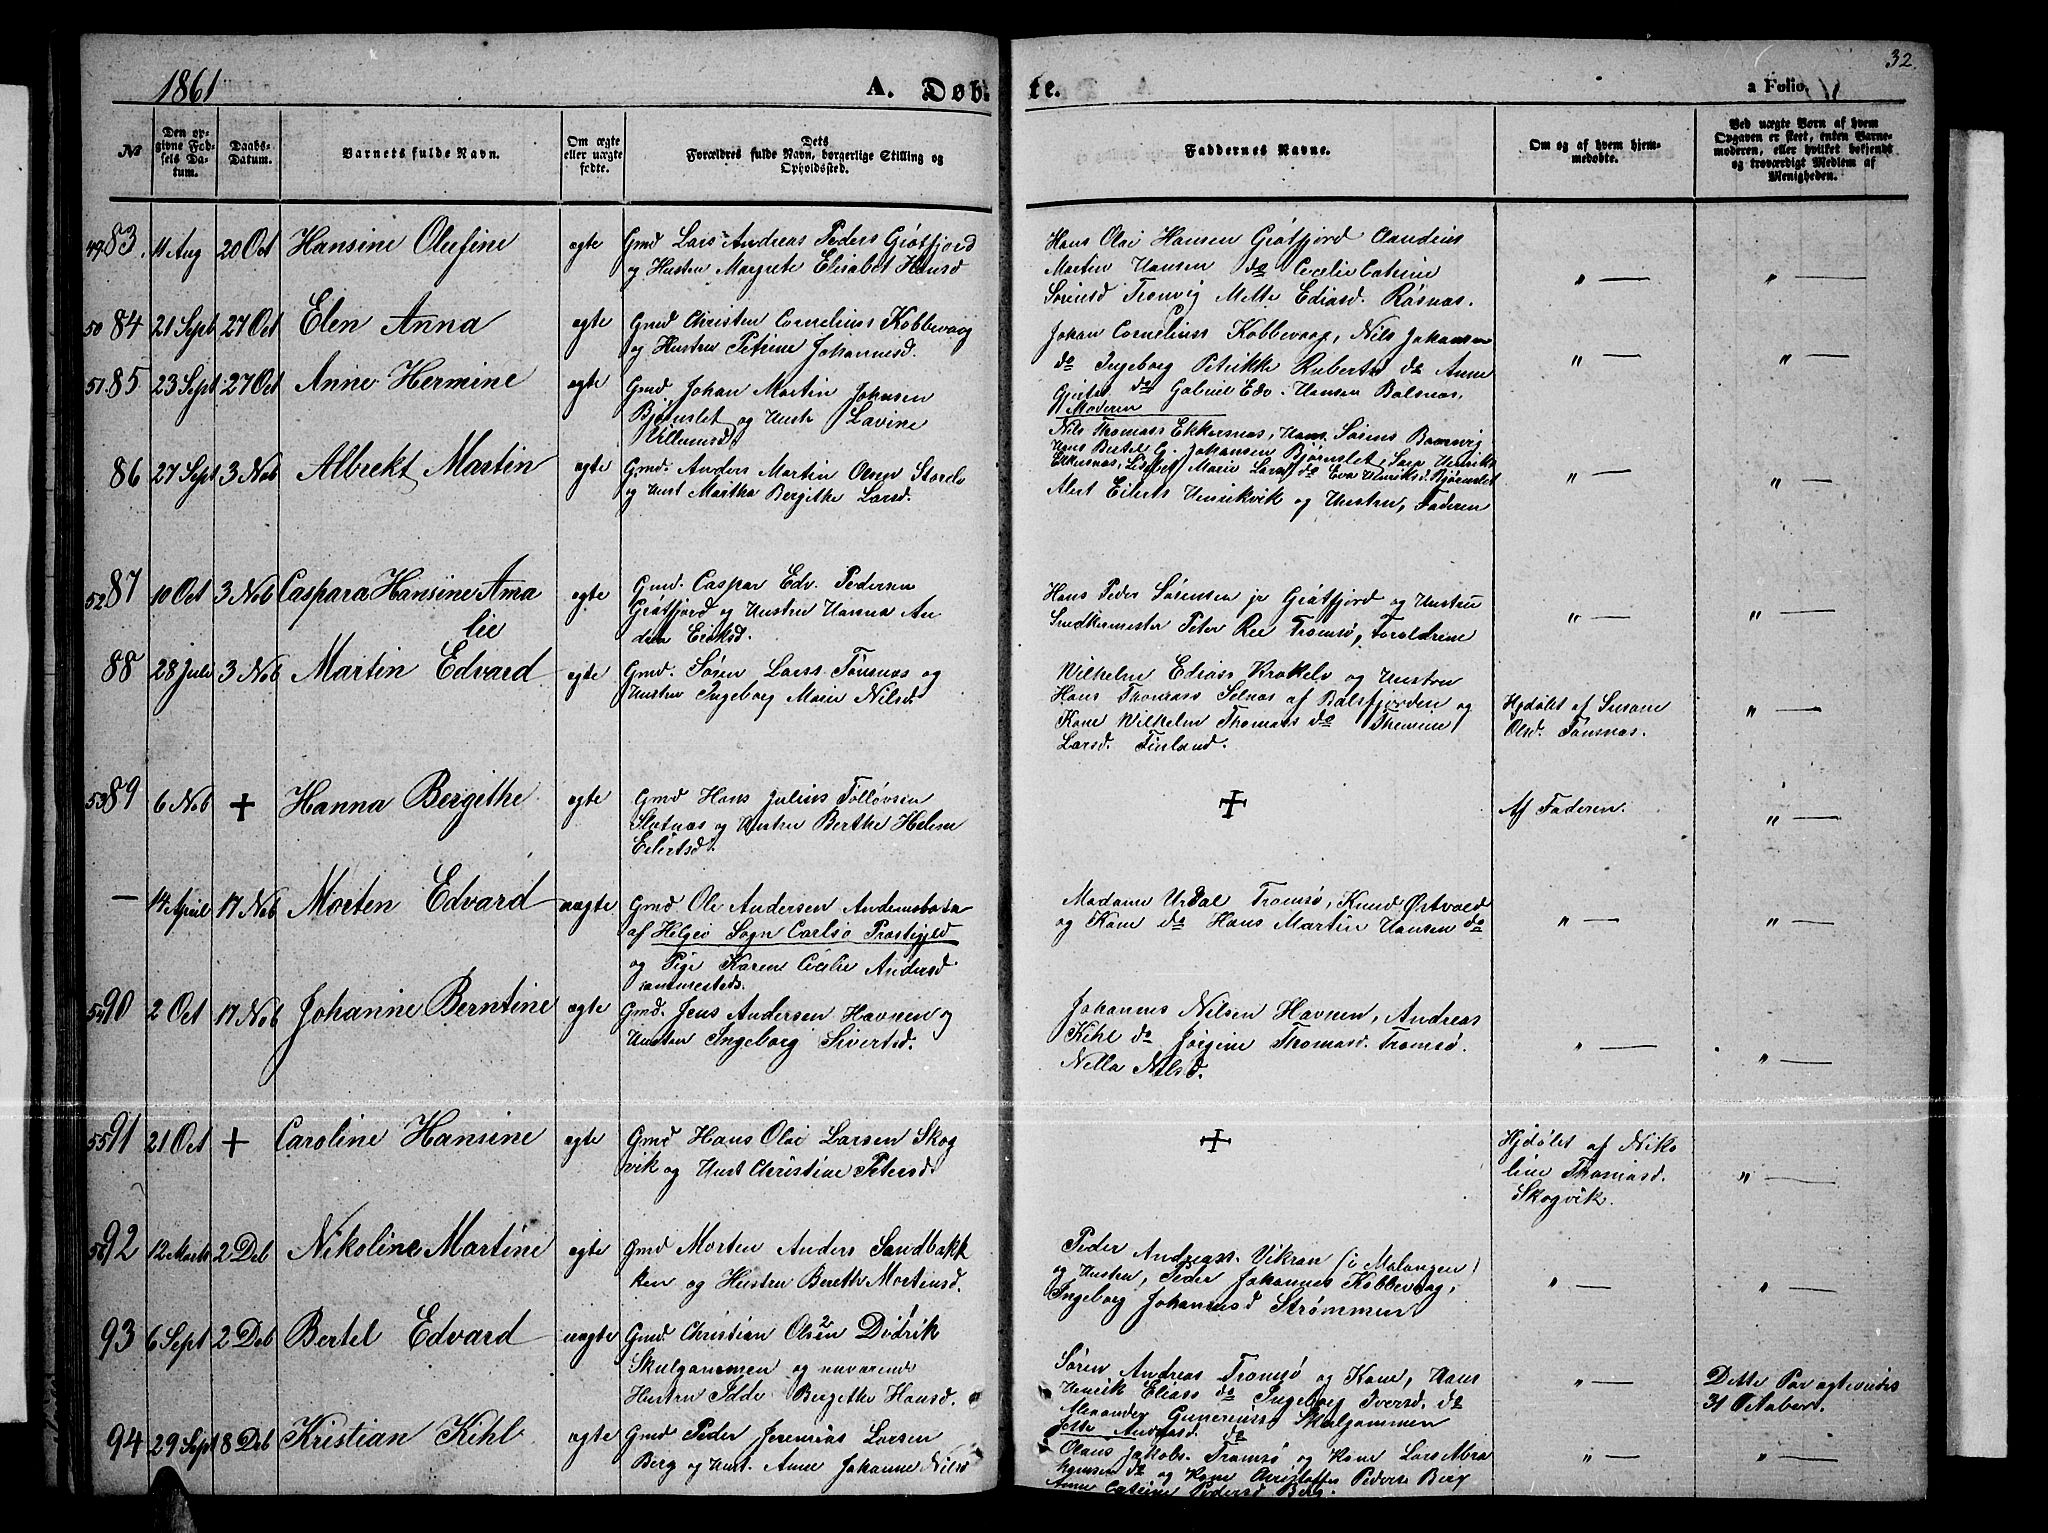 1861
A. Døb-
te.
a Folio
32.
No
Den op-
givne Fød-
sels Da-
tum.
Daabs-
Datum.
Barnets fulde Navn.
Om ægte
eller uægte
fødte.
Dets
Forældres fulde Navn, borgerlige Stilling og
Opholdssted.
Faddernes Navne.
Om og af hvem hjem-
medøbte.
Ved uægte Børn af hvem
Opgaven er skeet, enten Barne-
moderen, eller hvilket bekjendt
og troværdigt Medlem af
Menigheden.
49 83. 11 Aug 20 Oct Hansine Olufine ægte
Gmd Lars Andreas Peders Grøtfjord
og Hustru Margrete Elisabet Hansd
Hans Olai Hansen Grøtfjord Claudius
Martin Hansen do Cecilie Catrine
Sørensd Tromvig Mette Ediasd. Råsnæs.
" —
" —
50 84 21 Sept 27 Oct Elen Anna ægte
Gmd Christen Cornelius Kobbevaag
og Hustru Petrine Johannesd.
Johan Cornelius Kobbevaag, Nils Johansen
do Ingeborg Petrikke Roberts do Anne
" —
" —
51 85 23 Sept 27 Oct Anne Hermine ægte
Gmd. Johan Martin Johnsen
Bjørnslet og Hustr Lavine
Villumsd.
do Gabriel Edv. Hansen Balsnæs.
Moderen
86 27 Sept 3 Nob Albrekt Martin ægte
Gmd. Anders Martin Olsen Storelv
og Hust Martha Bergithe Larsd.
Nils Thomass Ekkersnæs, Hans Sørens
Hans Bertel G. Johansen Bjørnslet
Ekkersnæs, Marie Larsd do Eva Henriksd. Bjørnslet
Alert Eilerts Henrikvik og Hustru, Faderen
" —
" —
52 87 10 Oct 3 Nob Caspara Hansine Ama
lie ægte
Gmd. Caspar Edv. Pedersen
Grøtfjord og Hustru Hanna An
drea Eriksd.
Hans Peder Sørensen jr Grøtfjord og Hustru
Snedkermester Peter Ree Tromsø, Forældrene
" —
" —
88 28 Juli 3 Nob Martin Edvard ægte
Gmd. Søren Larss Tønsnæs og
Hustru Ingeborg Marie Nilsd
Wilhelm Ediass Krokelv og Hustru
Hans Thomass Selnæs af Balsfjorden og
Kone Wilhelm Thomass do
Larsd. Finland.
Hjdøbt af Susane
Olsd. Tønsnæs.
" —
53 89 6 Nob + Hanna Bergithe ægte
Gmd Hans Julius Tollevsen
Slotnæs og Hustru Berthe Helene
Eilertsd.
+
Af Faderen.
" —
— 14 April 17 Nob Morten Edvard uægte
Gmd Ole Andersen Andamsbotn
af Helgø Sogn Carlsø Prestigjeld
og Pige Karen Cecilie Andersd
sammesteds.
Madame Urdal Tromsø, Knud Østvold
og Kone do Hans Martin Hansen do
" —
" —
54 90 2 Oct 17 Nob Johanne Berntine ægte
Gmd. Jens Andersen Havnen og
Hustru Ingeborg Sivertsd.
Johannes Nilsen Havnen, Andreas
Kihl do Jørgine Thomasd. Tromsø.
Nella Nilsd.
" —
" —
55 91 21 Oct + Caroline Hansine ægte
Gmd Hans Olai Larsen Skog
vik og Hust Christine Petersd.
+
Hjdøbt af Niko
line Thomasd.
Skogvik.
" —
56 92 12 Marts 2 Deb Nikoline Martine ægte
Gmd Morten Anders Sandbakk
ken og Hustru Berethe Mortensd.
Peder Andreass. Vikran (i Malangen)
og Hustru, Peder Johannes Kobbevaag,
Ingeborg Johannesd Strømmen
" —
" —
93 6 Sept 2 Deb Bertel Edvard uægte
Gmd. Christian Olsen Didrik
Skulgammen og nuværende
Hustru Idde Bergithe Hansd.
Søren Andreas Tromsø og Kone, Hans
Henrik Eliass do Ingeborg Iversd. do
Alexander Gunerius Skulgammen
Jette Andersd. do
" —
Dette Par ægteviedes
31 October.
94 29 Sept 8 Deb Kristian Kihl ægte
Gmd Peder Jeremias Larsen
Berg og Hust. Anne Johanne Nilsd
Olaus Jakobs. Tromsø og Kone Lars Abra
hamsen do og Kone Christoffer Peders Berg
Anne Catrine Pedersd Berg.
" —
" —